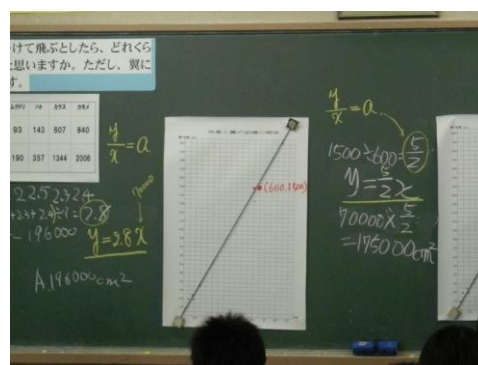 けて飛ぶとしたら、どれくら
思いますか。ただし、翼に
す。
ムクドリ ハト カラス カモメ
93 143 607 840
190 357 1344 2006
y/x = a
22.5 2.3 2.4
2.8
196000
y=2.8x
70000
A.196000cm²
(600,1500)
y/x = a
1500÷600=5/2
y=5/2x
70000×5/2
=175000cm²